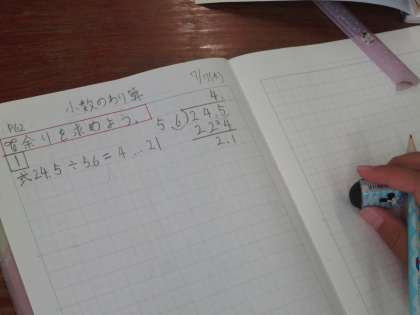 小数のわり算 7/17(木)
P62
余りを求めよう。
1
式24.5÷5.6=4…21
4.
5.6)24.5
22.4
2.1